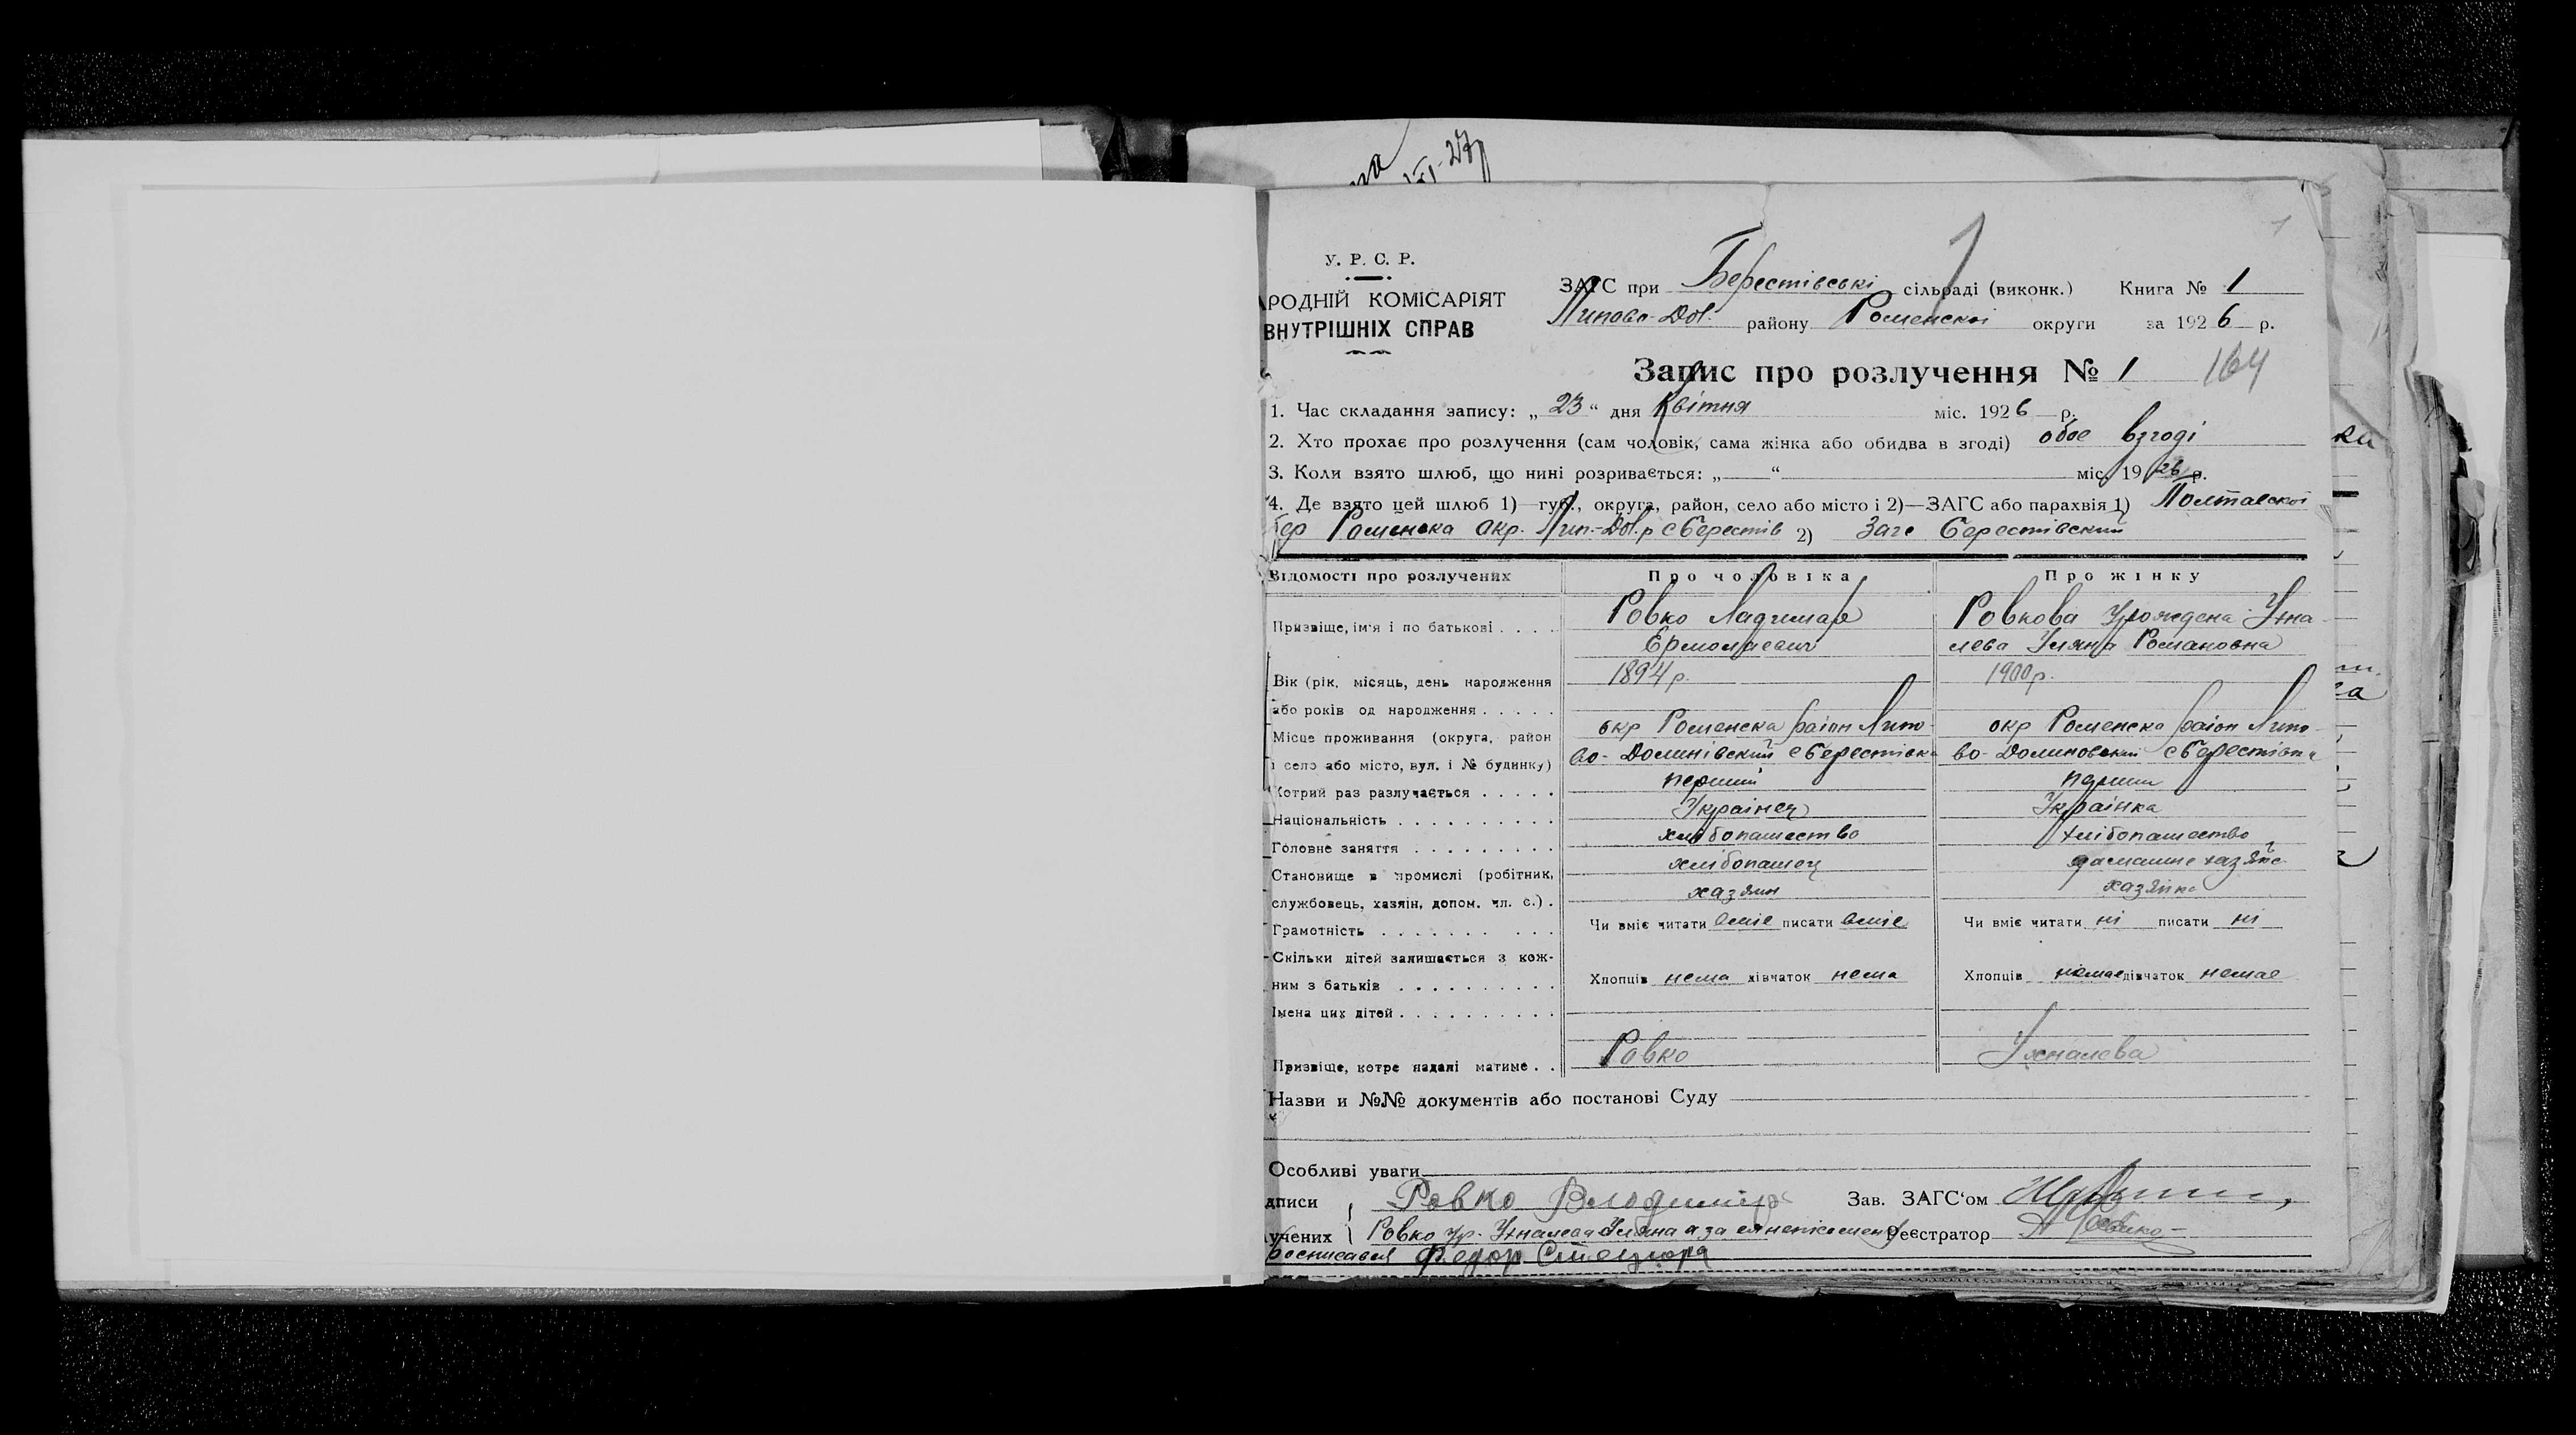 У. Р. С. Р.
РОДНІЙ КОМІСАРІЯТ
ВНУТРІШНІХ СПРАВ
ЗАГС при Берестівські сільраді (виконк.) Книга № 1
Липово-Дол. району Роменскоі округи за 1926 р.
Запис про розлучення № 1 164
1. Час складання запису: „23“ дня Квітня міс. 1926 р.
2. Хто прохає про розлучення (сам чоловік, сама жінка або обидва в згоді) обое взгоді
3. Коли взято шлюб, що нині розривається: „ “ міс. 1926 р.
4. Де взято цей шлюб 1)—губ., округа, район, село або місто і 2)—ЗАГС або парахвія 1) Полтавскоі
Роменска окр. Лип.-Дол. р с Берестів 2) Загс Берестівский
Відомості про розлучених Про чоловіка Про жінку
Призвіще, ім'я і по батькові . . . . Ровко Ладимар Ермолаевич Ровкова Урождена Ухна-
лева Уляна Романовна
Вік (рік, місяць, день народження 1894 р. 1900 р.
або років од народження . . . . .
Місце проживання (округа, район окр Роменска раіон Липо- окр Роменска раіон Липо-
і село або місто, вул. і № будинку) во-Долинівский с Берестівка во-Долиновский с Берестівка
Котрий раз разлучається . . . . . первий первий
Національність . . . . . . . . . . Украінец Украінка
Головне заняття . . . . . . . . . хлібопашество хлібопашество
Становище в промислі (робітник, хлібопашец домашне хазяйс
службовець, хазяін, допом. чл. с.) . хазяин хазяйка
Грамотність . . . . . . . . . . Чи вміє читати вміє писати вміє Чи вміє читати ні писати ні
Скільки дітей залишається з кож-
ним з батьків . . . . . . . . . . Хлопців нема дівчаток нема Хлопців немае дівчаток немае
Імена цих дітей . . . . . . . . . .
Призвіще, котре надалі матиме . . Ровко Ухналева
Назви и №№ документів або постанові Суду
Особливі уваги
дписи Ровко Володимир Зав. ЗАГС‘ом
учених Ровко ур. Ухналева Уляна а за ея неписменну Реєстратор
росписався Федор Стецюра